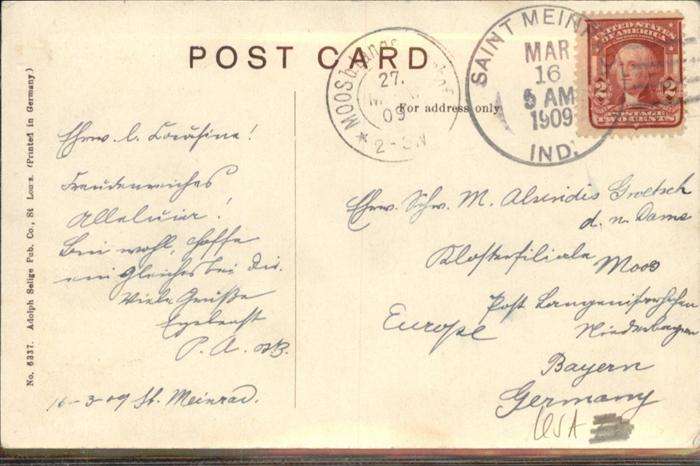 POST CARD
For address only
SAINT MEIN
MAR
16
5 AM
1909
IND.
MOOS
27.
09
2-3N
UNITED STATES
OF AMERICA
2 2
POSTAGE
TWO CENTS
No. 6337. Adolph Selige Pub. Co., St Louis. (Printed in Germany)
Ehrw. l. Cousine!
Freudenreiches
Alleluia!
Bin wohl, hoffe
ein Gleiches bei Dir.
Viele Grüße
Ergebenst
P. A.
16-3-09 St. Meinrad.
Ehrw. Schw. M.
d. n. Dame
Klosterfiliale
Moos
Post
Europe
Niederbayern
Bayern
Germany
USA